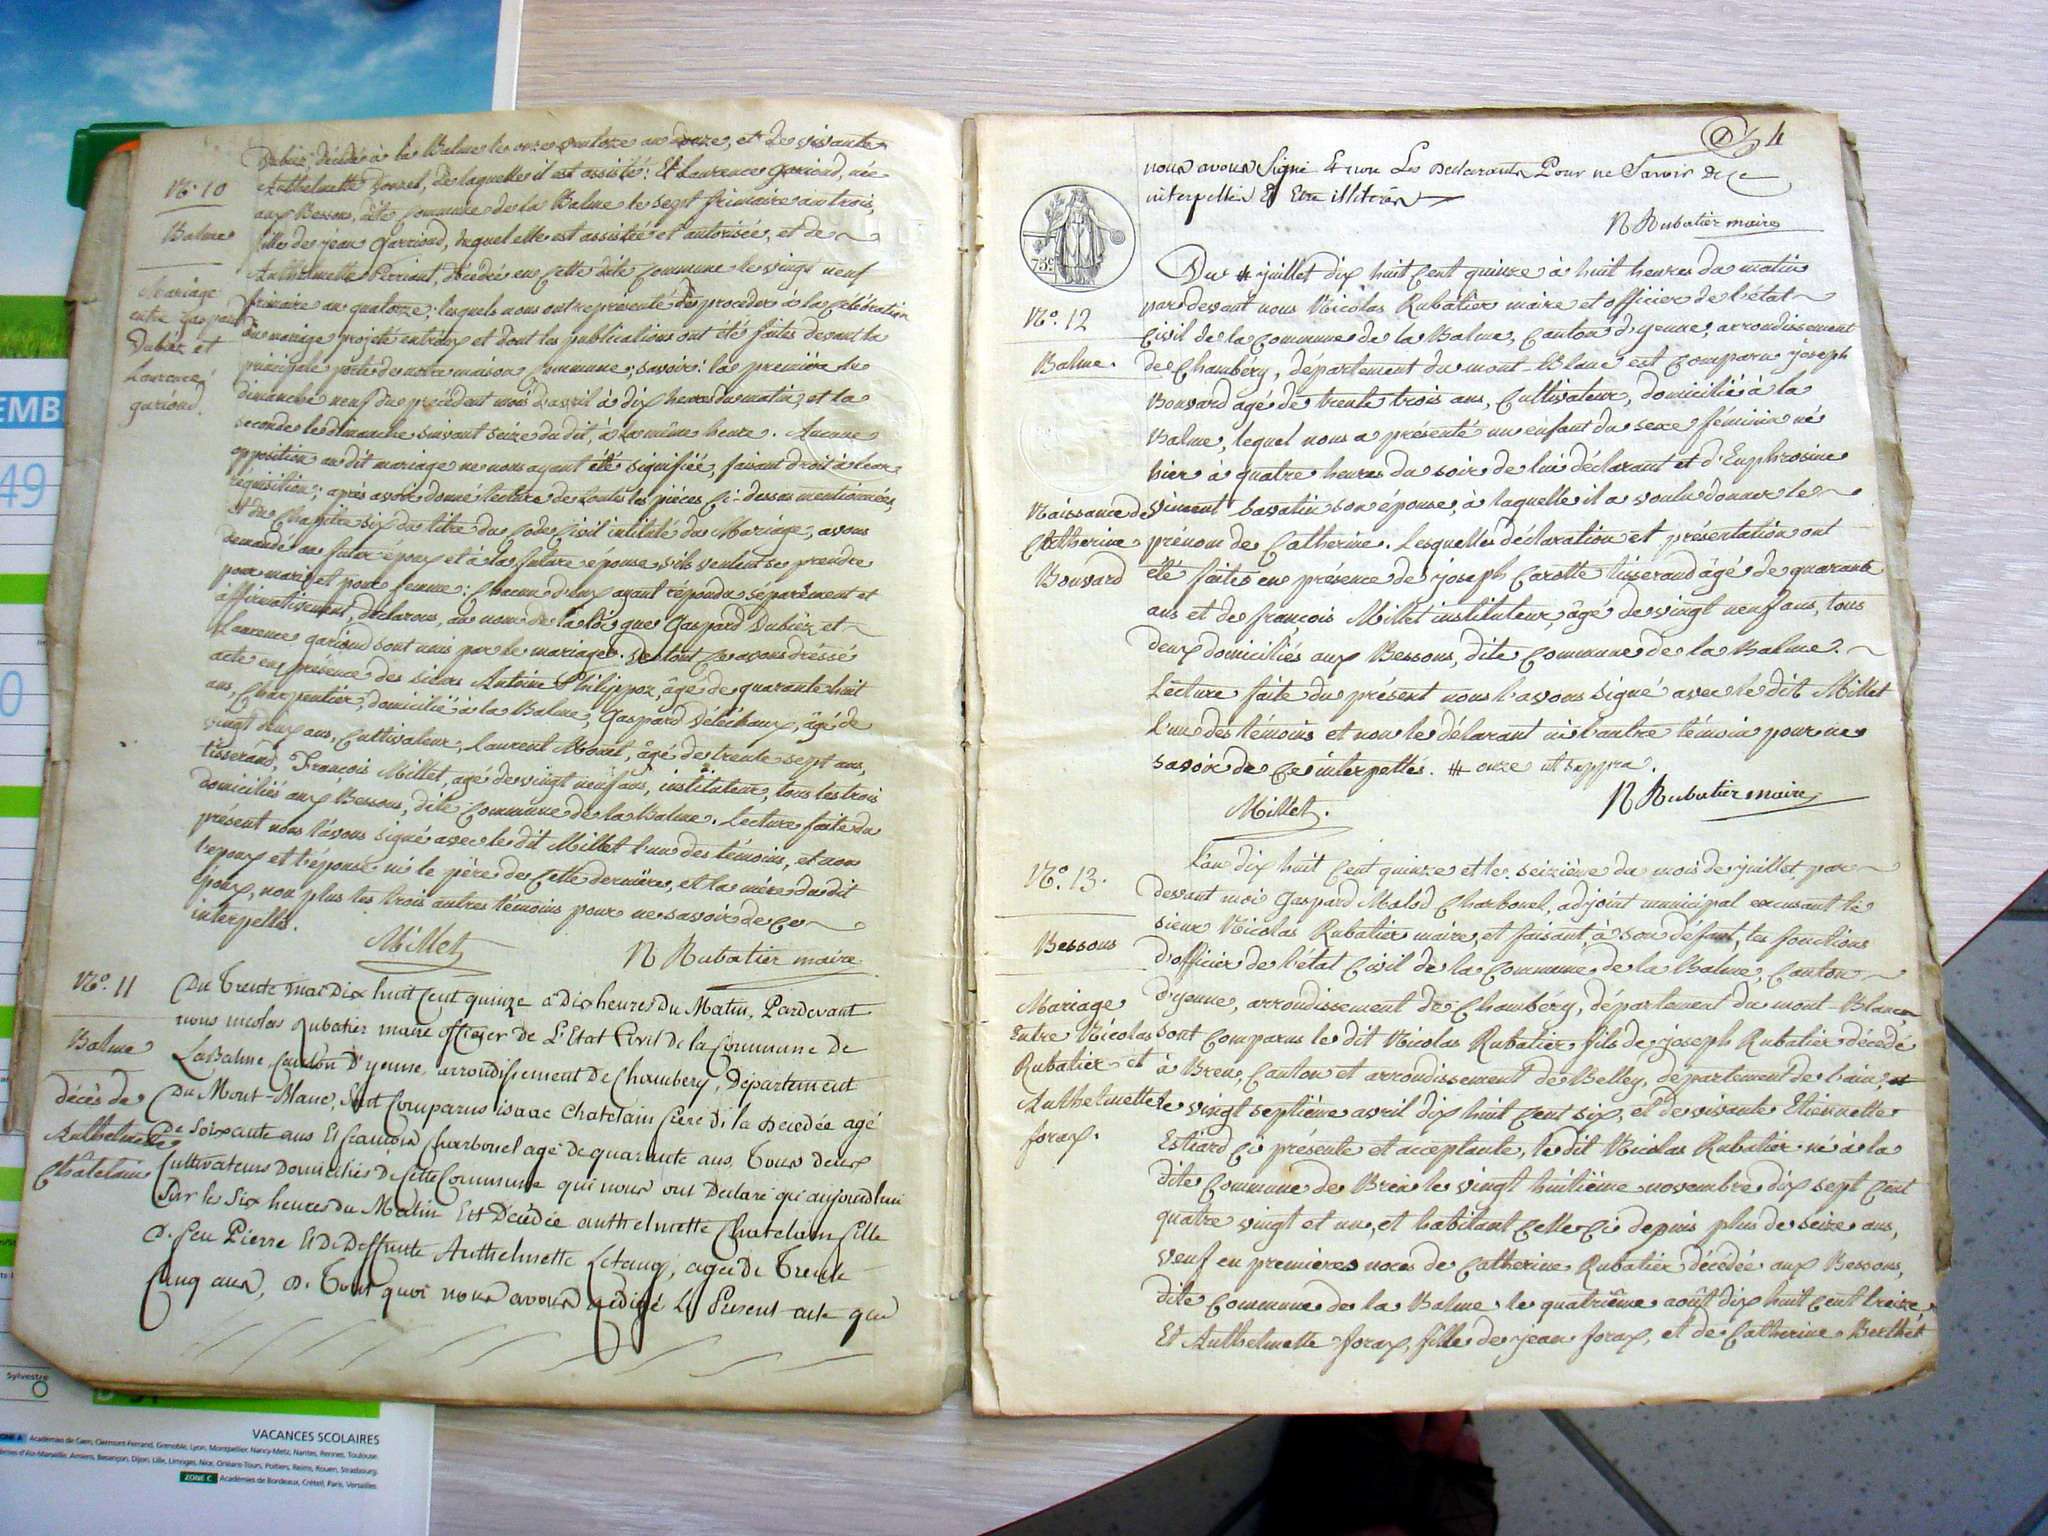 N.° 10
Balme
Mariage
entre Gaspard
Dubiez et
Laurence
gariond.
Dubiez, décédé à la Balme le onze ventoze an douze, et de vivante
Anthelmette Donzel, de laquelle il est assisté: Et Laurence gariond, née
aux Bessons, dite Commune de la Balme le sept frimaire an trois,
fille de jean Garriond, duquel elle est assistée et autorisée, et de
Anthelmette Perriant, décédée en Cette dite Commune le vingt neuf
frimaire an quatorze; lesquels nous ont représenté de proceder à la Célébration
du mariage projeté entr'eux et dont les publications ont été faites devant la
principale porte de notre maison Commune; savoir: la première le
dimanche neuf du précédent mois d'avril à dix heures du matin, et la
seconde le dimanche suivant seize du dit, à la même heure. Aucune
opposition au dit mariage ne nous ayant été signifiée, faisant droit à leur
réquisition; après avoir donné lecture de toutes les pièces Ci-dessus mentionnées,
et du Chapitre six du titre du Code Civil intitulé du Mariage; avons
demandé au futur époux et à la future épouse s'ils veulent se prendre
pour mari et pour femme: Chacun d'eux ayant répondu séparément et
affirmativement, déclarons, au nom de la loi que Gaspard Dubiez et
Laurence gariond sont unis par le mariage. De tout Ce avons dréssé
acte en présence des sieurs Antoine Philippoz, âgé de quarante huit
ans, Charpentier, domicilié à la Balme, Gaspard Déléchaux, âgé de
vingt deux ans, Cultivateur, Laurent Moret, âgé de trente sept ans,
tisserand, François Millet, agé de vingt neuf ans, instituteur, tous les trois
domiciliés aux Bessons, dite Commune de la Balme. Lecture faite du
présent nous l'avons signé avec le dit Millet l'un des témoins, et non
l'epoux et l'épouse ni le père de Cette dernière, et la mère du dit
époux, non plus les trois autres témoins pour ne savoir de Ce
interpellés.
Millet N Rubatier maire
N.° 11
Balme
décès de
Anthelmette
Châtelain
Du Trente mai Dix huit Cent quinze a Dix heures Du Matin, Pardevant
nous nicolas Rubatier maire officier de L'Etat Civil De la Commune De
LaBalme, Canton D'yenne, arrondissement De Chambery, Département
Du Mont-Blanc, Sont Comparus isaac Chatelain frere De la Decedée agé
De Soixante ans Et françois Charbonel agé De quarante ans, Tous Deux
Cultivateurs Domiciliés De Cette Commune qui nous ont Declaré qu'aujourd'hui
Sur les Six heures Du Matin Est Décédée anthelmette Chatelain fille
De feu Pierre Et De Deffunte Anthelmette Letanq, agée De Trente
Cinq ans, De Tout quoi nous avons redigé Le Present acte que
4
nous avons Signé Et non Les Declarants Pour ne Savoir De Ce
interpellés Et Etre illiterés
N Rubatier maire
75 c
N.° 12
Balme.
Naissance de
Catherine
Bouvard
Du # juillet dix huit Cent quinze à huit heures du matin
pardevant nous Nicolas Rubatier maire et officier de l'état
Civil de la Commune de la Balme, Canton d'yenne, arrondissement
de Chambery, département du mont-Blanc est Comparu joseph
Bouvard agé de trente trois ans, Cultivateur, domicilié à la
Balme, lequel nous a présenté un enfant du sexe féminin né
hier à quatre heures du soir de lui déclarant et d'Euphrosine
vincent-savatin son épouse, à laquelle il a voulu donner le
prénom de Catherine. Lesquelles déclaration et présentation ont
été faites en présence de joseph Carotte tisserand âgé de quarante
ans et de françois Millet instituteur, âgé de vingt neuf ans, tous
deux domiciliés aux Bessons, dite Commune de la Balme.
Lecture faite du présent nous l'avons signé avec le dit Millet
l'un des témoins et non le déclarant ni l'autre témoin pour ne
savoir de Ce interpellés. # onze ut suppra.
Millet. N Rubatier maire
N.° 13.
Bessons
Mariage
Entre Nicolas
Rubatier et
Anthelmette
forax.
L'an dix huit Cent quinze et le seizième du mois de juillet par
devant moi Gaspard Malod Charbonel, adjoint municipal excusant le
sieur Nicolas Rubatier maire, et faisant, à son défaut, les fonctions
d'officier de l'état Civil de la Commune de la Balme, Canton
d'yenne, arrondissement de Chambéry, département du mont-Blanc,
sont Comparus le dit Nicolas Rubatier fils de joseph Rubatier décédé
à Bren, Canton et arrondissement de Belley, département de l'ain,
le vingt septième avril dix huit Cent six, et de vivante Etiennette
Estiard Ci présente et acceptante, le dit Nicolas Rubatier né à la
dite Commune de Bren le vingt huitième novembre dix sept Cent
quatre vingt et un, et habitant Celle Ci depuis plus de seize ans,
veuf en premières noces de Catherine Rubatier décédée aux Bessons,
dite Commune de la Balme le quatrième août dix huit Cent treize,
Et Anthelmette forax, fille de jean forax, et de Catherine Berthet
EMB
49
0
Sylvestre
VACANCES SCOLAIRES
ZONE A Académies de Caen, Clermont-Ferrand, Grenoble, Lyon, Montpellier, Nancy-Metz, Nantes, Rennes, Toulouse.
d'Aix-Marseille, Amiens, Besançon, Dijon, Lille, Limoges, Nice, Orléans-Tours, Poitiers, Reims, Rouen, Strasbourg.
ZONE C Académies de Bordeaux, Créteil, Paris, Versailles.